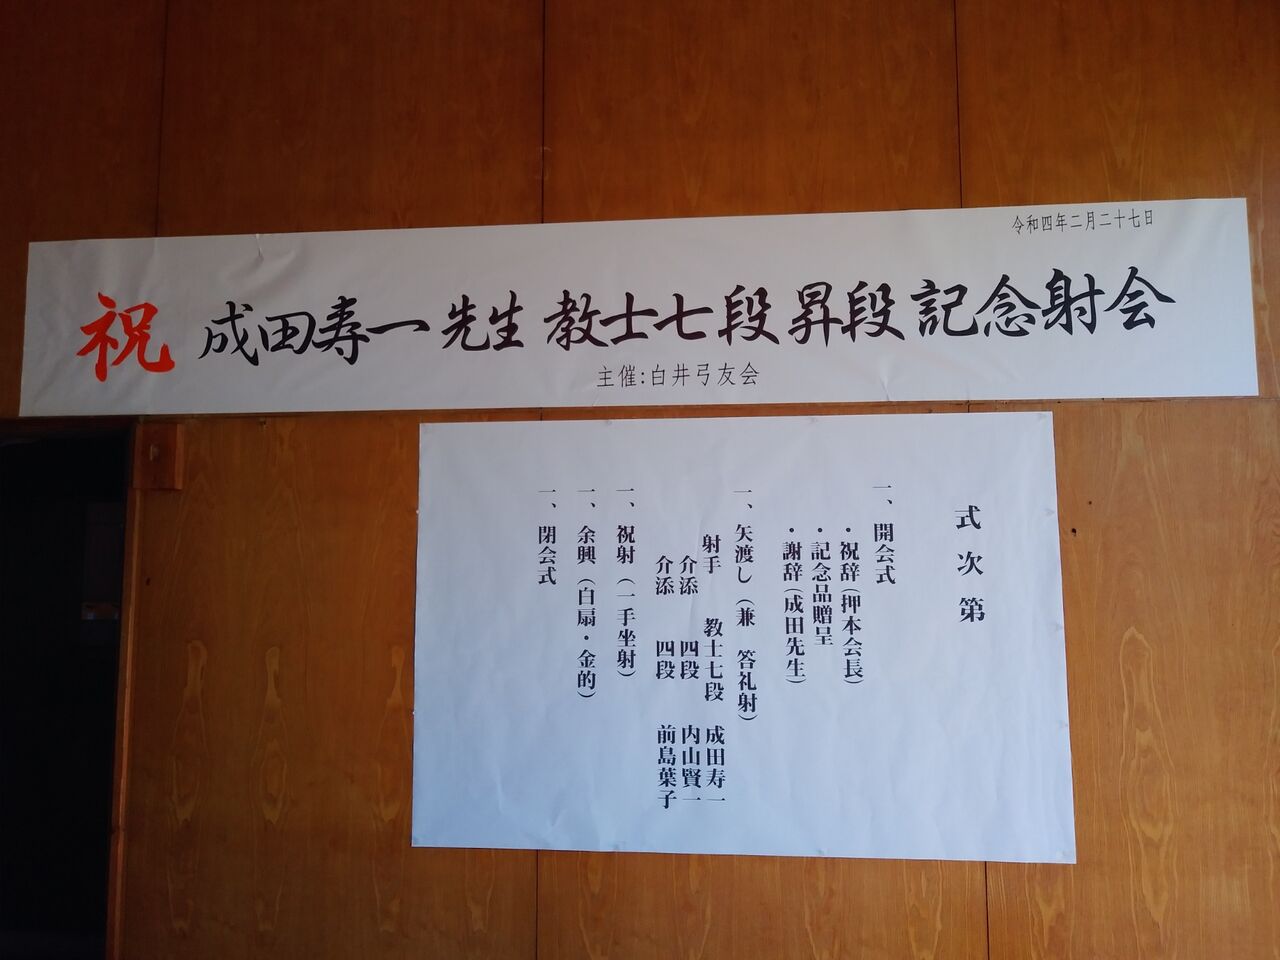 令和四年二月二十七日
祝 成田寿一先生 教士七段 昇段 記念射会
主催:白井弓友会
式次第
一、開会式
・祝辞(押本会長)
・記念品贈呈
・謝辞(成田先生)
一、矢渡し(兼 答礼射)
射手 教士七段 成田寿一
介添 四段 内山賢一
介添 四段 前島葉子
一、祝射(一手坐射)
一、余興(白扇・金的)
一、閉会式